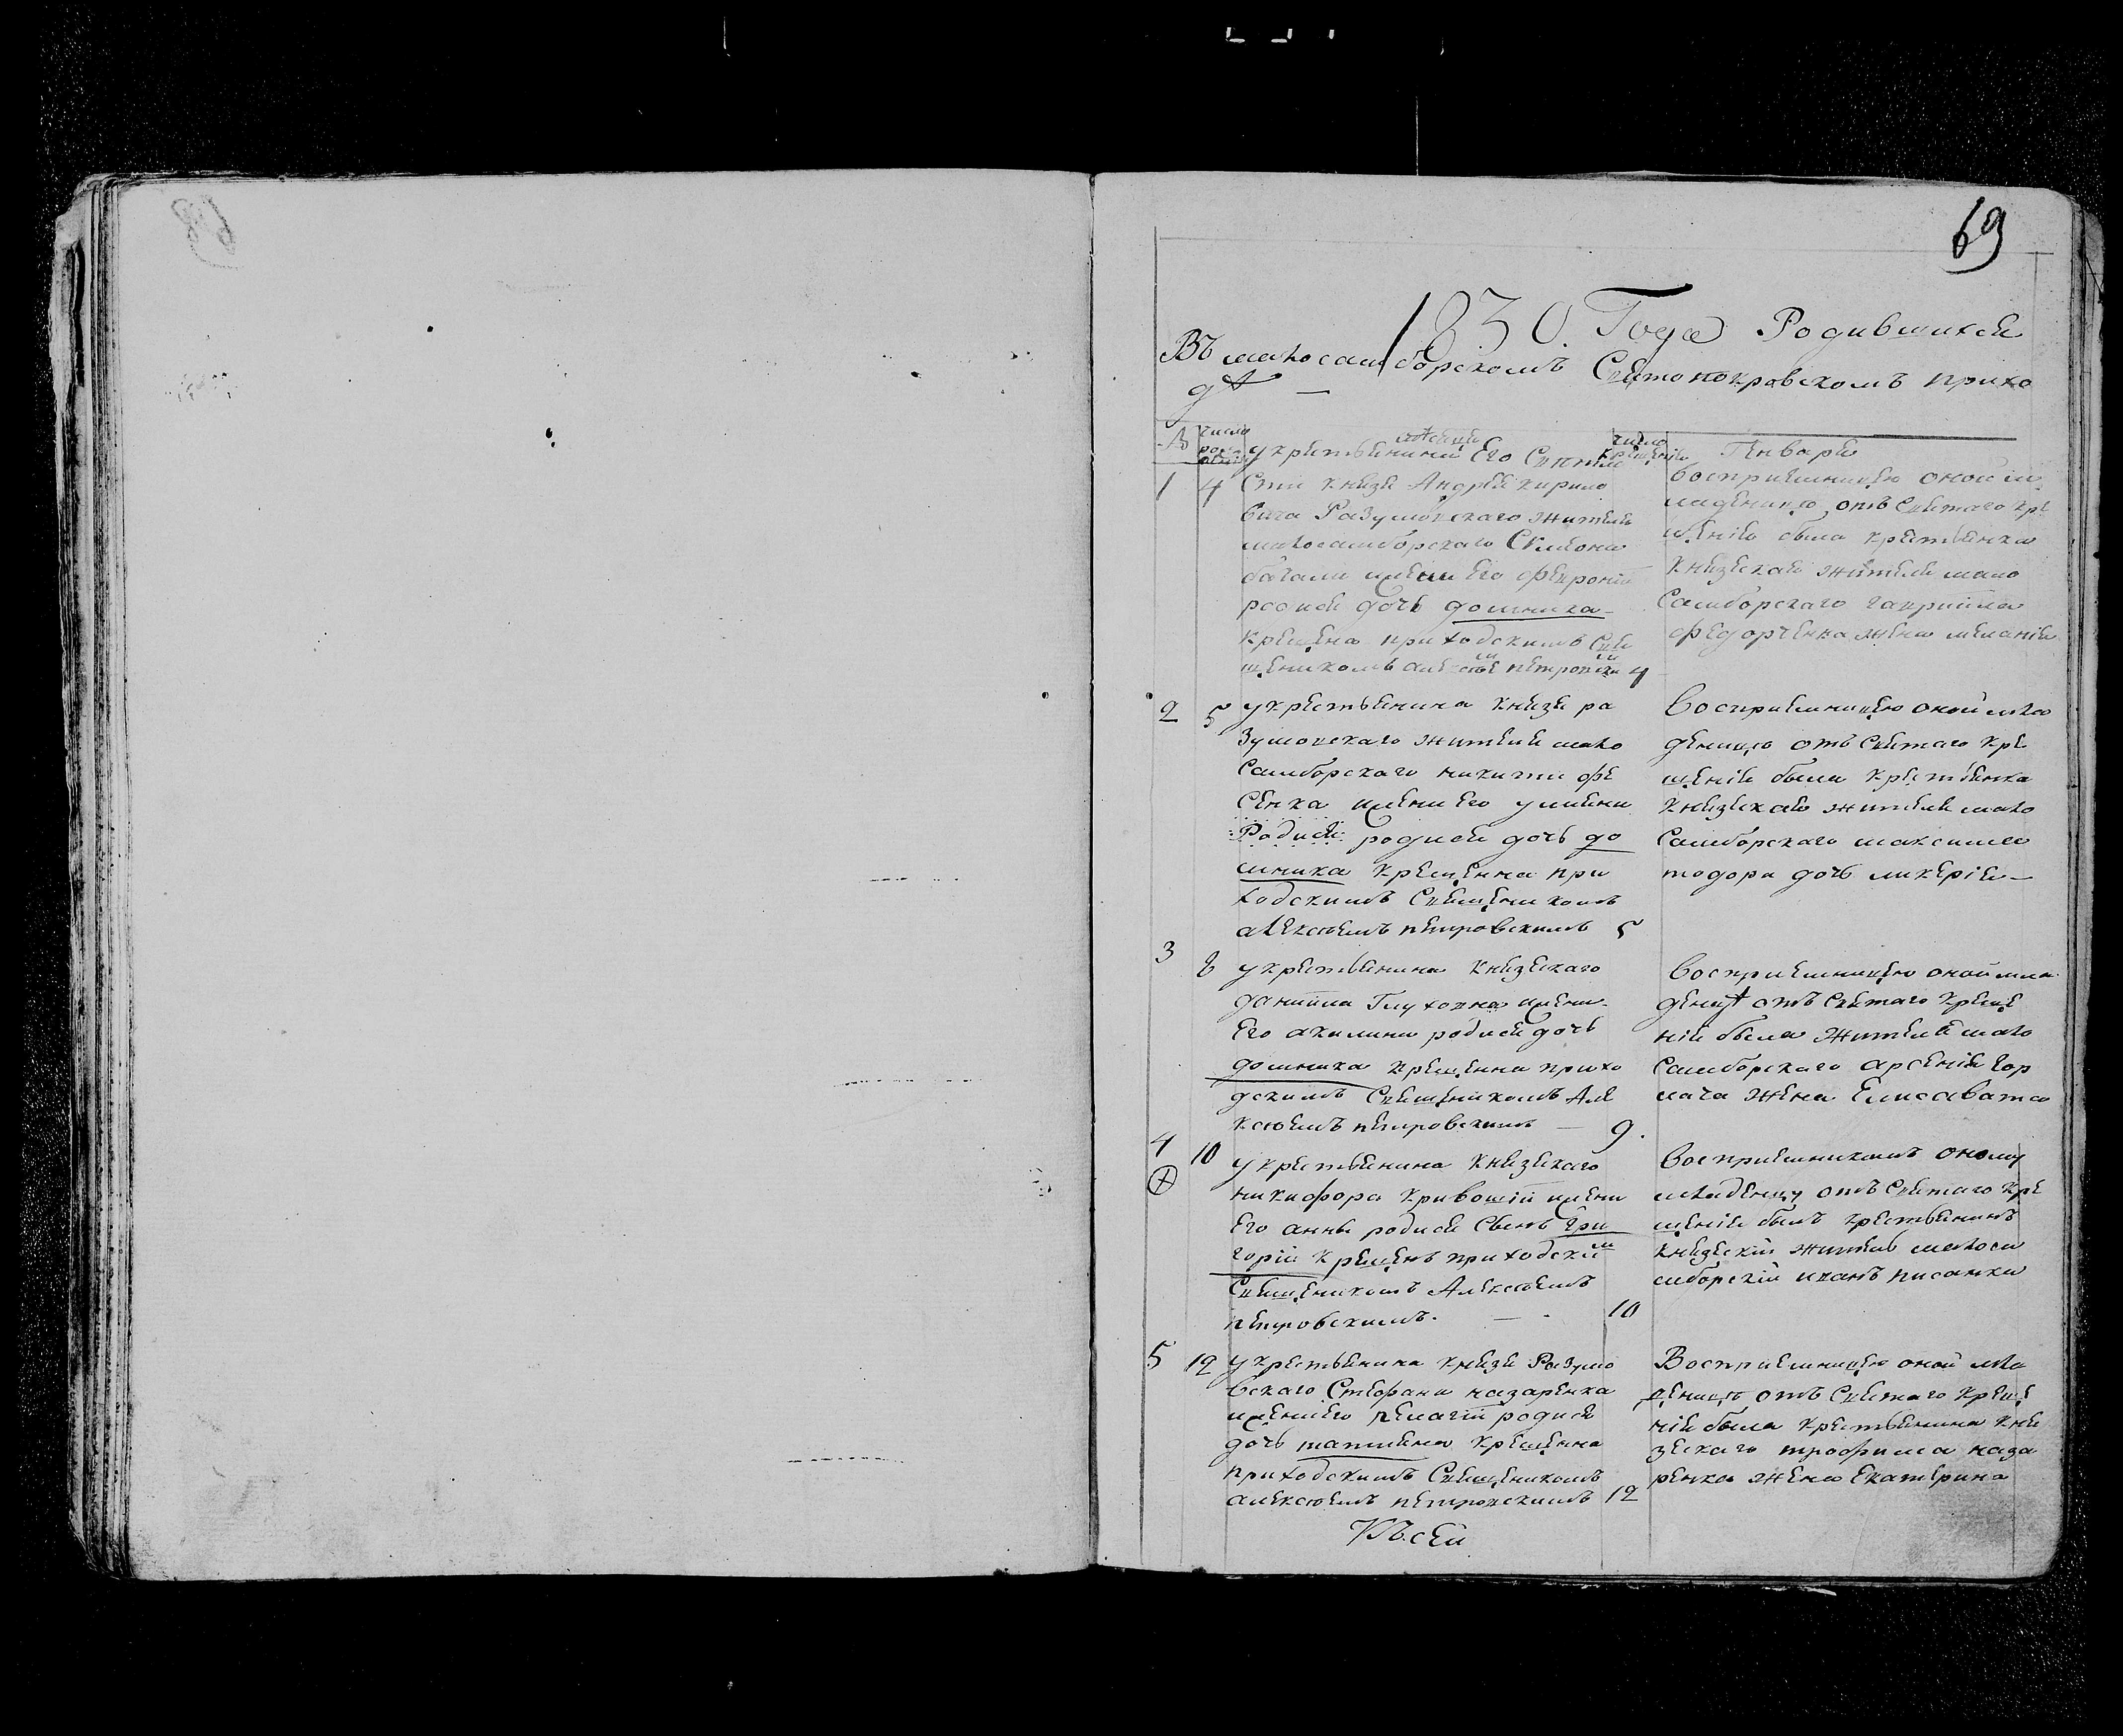 69
1830. Года Родившихся
Въ малосамборскомъ Свято покровскомъ прихо
дѣ —
№
число рожденія
мѣсяца
число крещенія
Генваря
1 4
у крестьянина Его Свѣтло
сти князя Андрея Кирило
вича Разумовскаго жителя
малосамборскаго Симеона
жены Его февроніи
родися дочь домника
крещена приходскимъ Свя
щеникомъ алексѣемъ петровскимъ 4
воспріемницею оной м
ладеницѣ отъ Святаго кре
щенія была крестьянка
князская жителя мало
Самборскаго гавриила
федорченка жена меланія
2 5
у крестьянина князя ра
зумовскаго жителя мало
Самборскаго никиты фе
сенка жены Его улияны
Родися родися дочь до
мника крещенна при
ходскимъ Священикомъ
алексѣемъ петровскимъ 5
воспріемницею оной мла
деницѣ отъ Святаго кре
щенія была крестьянка
князская жителя мало
Самборскаго максима
тодора дочь ликерія —
3 8
у крестьянина князскаго
даниила Глуховна жены
Его акилины родися дочь
домника крещенна прихо
дскимъ Священикомъ Але
ксѣемъ петровскимъ — 9.
воспріемницею оной мла
деницѣ отъ Святаго креще
нія была жителя мало
Самборскаго арсенія гор
лача жена Елисавата
4 10
у крестьянина князскаго
никифора кривошіи жены
Его анны родися Сынъ Гри
горій крещенъ приходским
Священикомъ Алексѣемъ
петровскимъ. — 10
воспріемникомъ оному
младенцу отъ Святаго кре
щенія былъ крестьянинъ
князскій житель малоса
мборскій иванъ писанка
5 12
у крестьянина князя Разумо
вскаго Стефана назаренка
жены Его пелагіи родися
дочь татияна крещенна
приходскимъ Священикомъ
алексѣемъ петровскимъ 12
Воспріемницею оной мла
деницѣ отъ Святаго креще
нія была крестьянина кня
зскаго трофима наза
ренка жена Екатерина
Къ сей